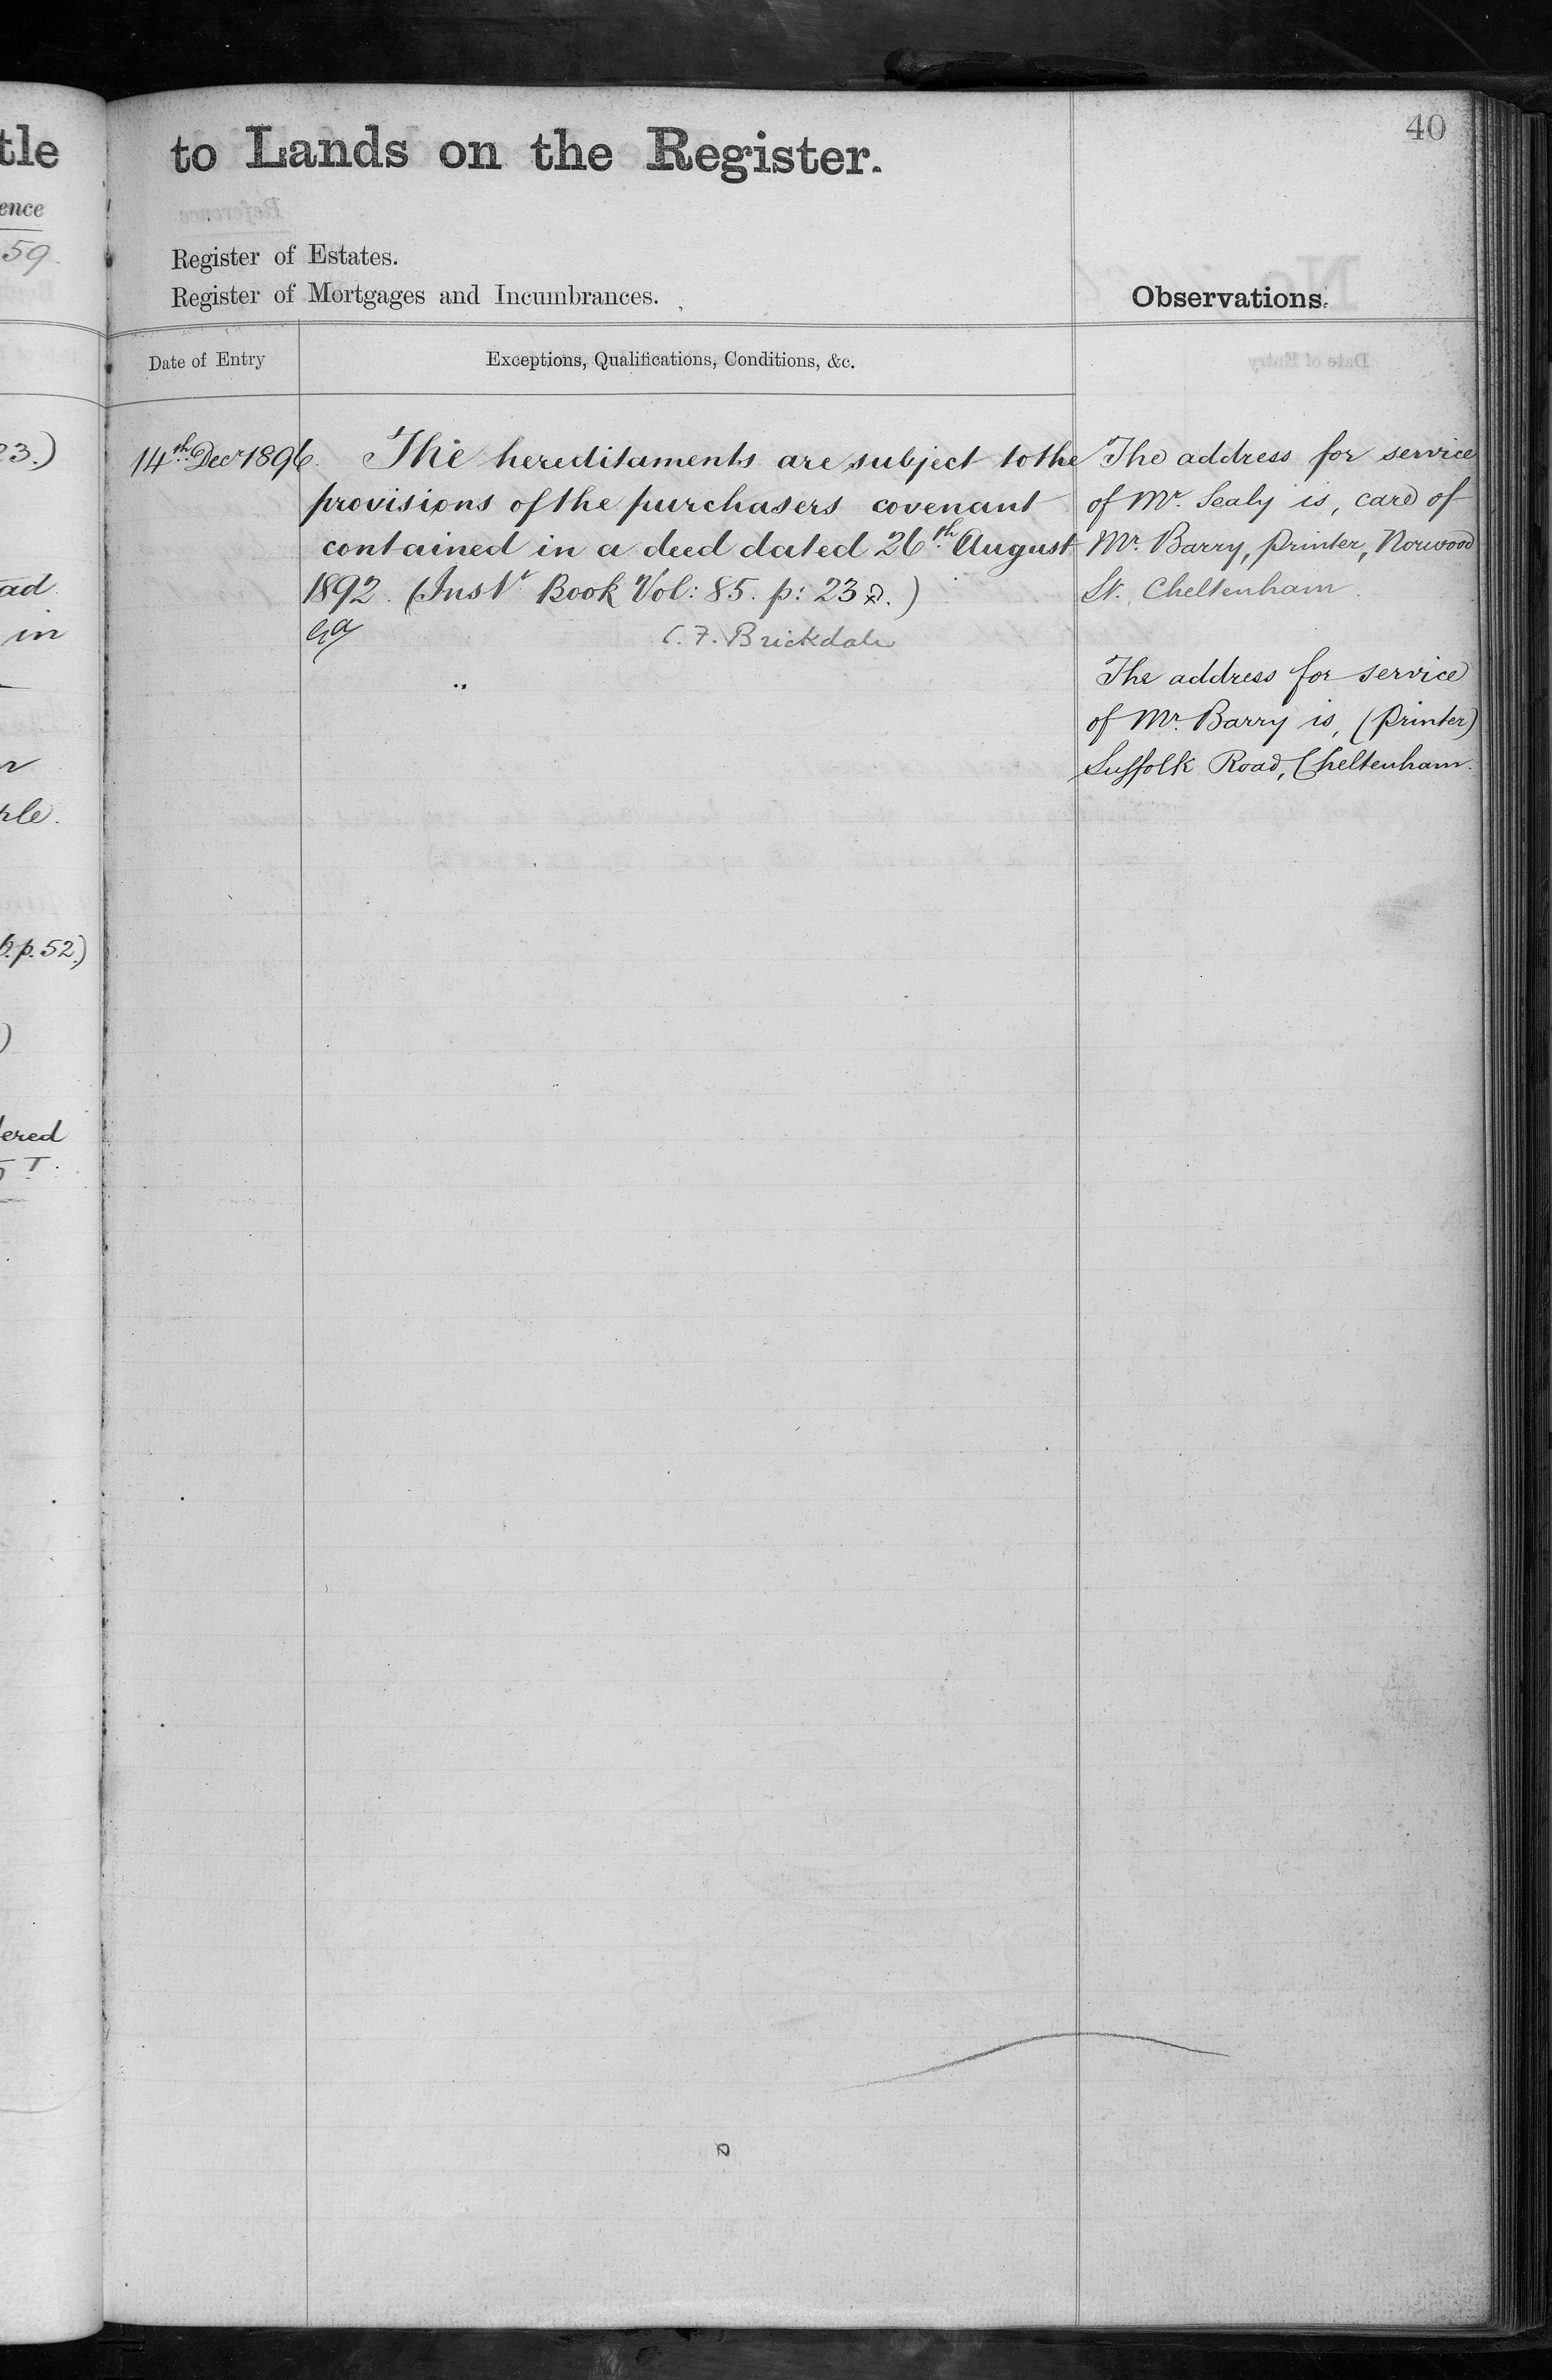 40
tle
to Lands on the Register.
ence
59.
Register of Estates.
Register of Mortgages and Incumbrances.
Observations.
Date of Entry
Exceptions, Qualifications, Conditions, &c.
23.)
14th Decr 1896.
The hereditaments are subject to the
provisions of the purchasers covenant
contained in a deed dated 26th August
1892. (Instr Book Vol: 85. p: 23 .)
C. F. Brickdale
The address for service
of Mr. Sealy is, care of
Mr. Barry, printer, Norwood
St. Cheltenham.
The address for service
of Mr. Barry is, (printer)
Suffolk Road, Cheltenham.
ad.
in
ple.
p. 52.)
ered